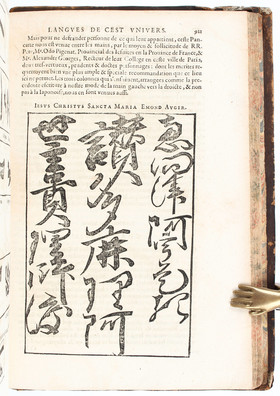 LANGVES DE CEST VNIVERS.
Mais pour ne desfrauder personne de ce qui leur appartient, ceste Pan-
carte nous est venuë entre les mains, par le moyen & sollicitude de RR.
PP. M. Odo Pigenat, Prouincial des Iesuistes en la Prouince de France, &
M. Alexandre Georges, Recteur de leur College en ceste ville de Paris,
prudents & doctes personnages: dont les merites re-
quierroyent bien vne plus ample & speciale recommandation que ce lieu
icy ne permet. Les trois colomnes qui s'ensuiuent, arrengees comme la pre-
cedente escriture à nostre mode de la main gauche vers la droicte, & non
pas à la en sont venus aussi.
IESVS CHRISTVS SANCTA MARIA EMOND AVGER.
世主貴理師渡
讃多麻理阿